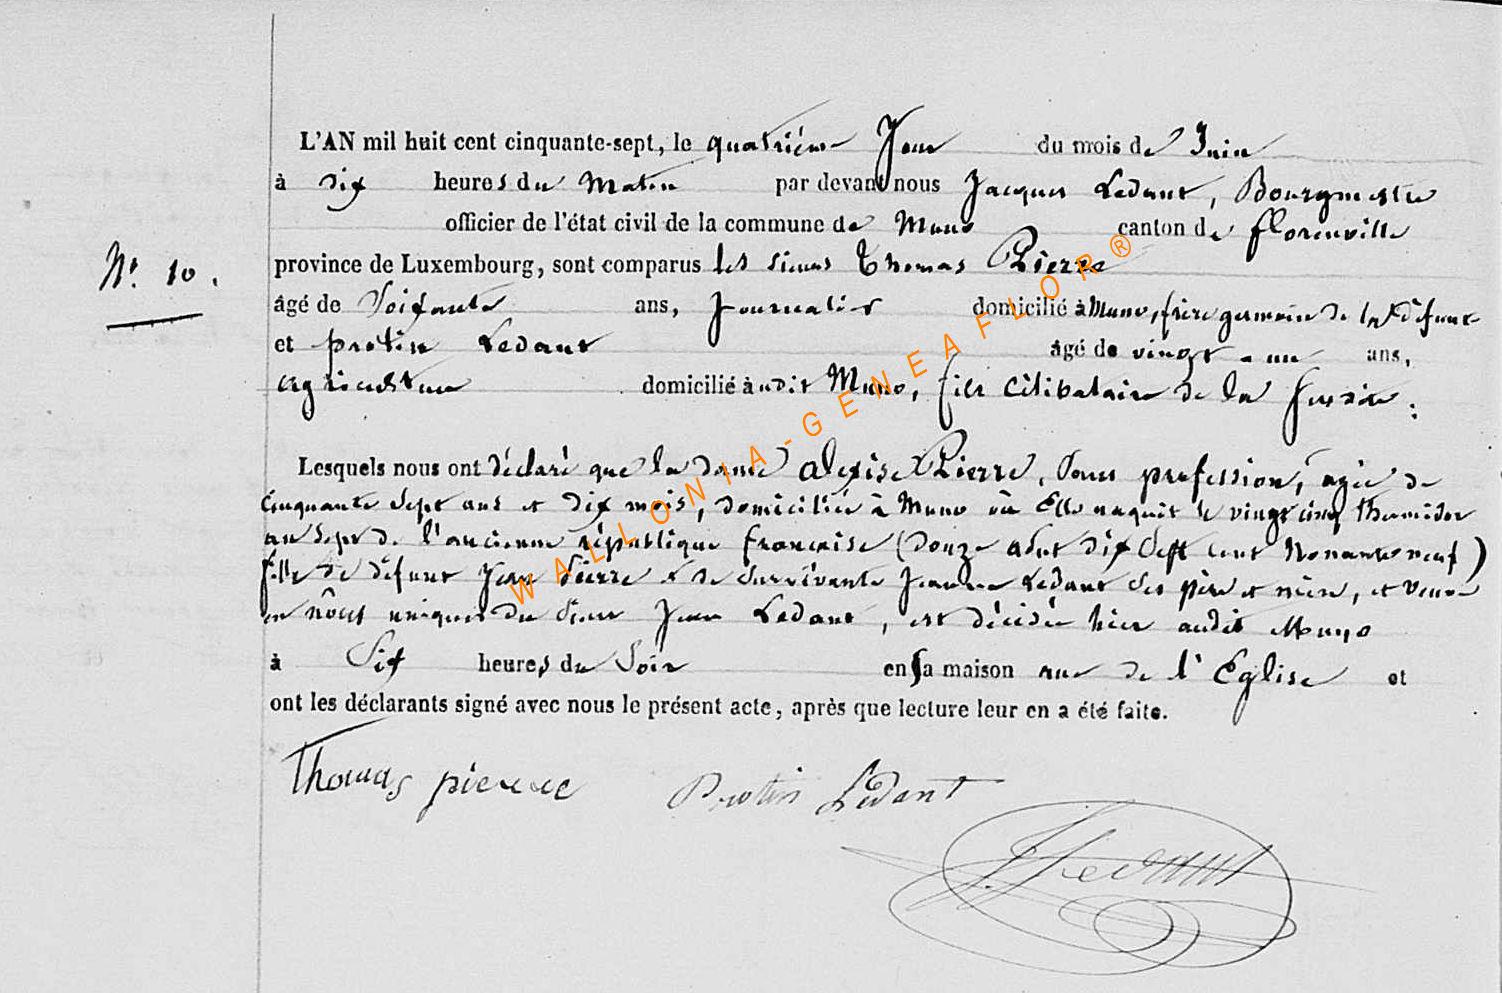 L'AN mil huit cent cinquante-sept, le quatrième Jour du mois de Juin
à dix heures du Matin par devant nous Jacques Ledant, Bourgmestre
officier de l'état civil de la commune de Muno canton de florenville
N° 10.
province de Luxembourg, sont comparus les sieurs Thomas Pierre
âgé de Soixante ans, Journalier domicilié à Muno, frère germain de la défunte
et protin Ledant âgé de vingt-un ans,
agriculteur domicilié audit Muno, fils Célibataire de la
Lesquels nous ont déclaré que la dame alexise Pierre, Sans profession, agée de
Cinquante Sept ans et dix mois, domiciliée à Muno où Elle naquit le vingt cinq thermidor
an Sept de l'ancienne république française (douze août dix Sept cent Nonante neuf)
fille de défunt Jean Pierre & de Survivante Jeanne Ledant Ses père et mère, et veuve
en nôces uniques du Sieur Jean Ledant, est décédée hier audit Muno
à Six heures du Soir en Sa maison rue de l'Eglise et
ont les déclarants signé avec nous le présent acte, après que lecture leur en a été faite.
Thomas pierre Protin Ledant
J Ledant
WALLONIA-GENEAFLOR®